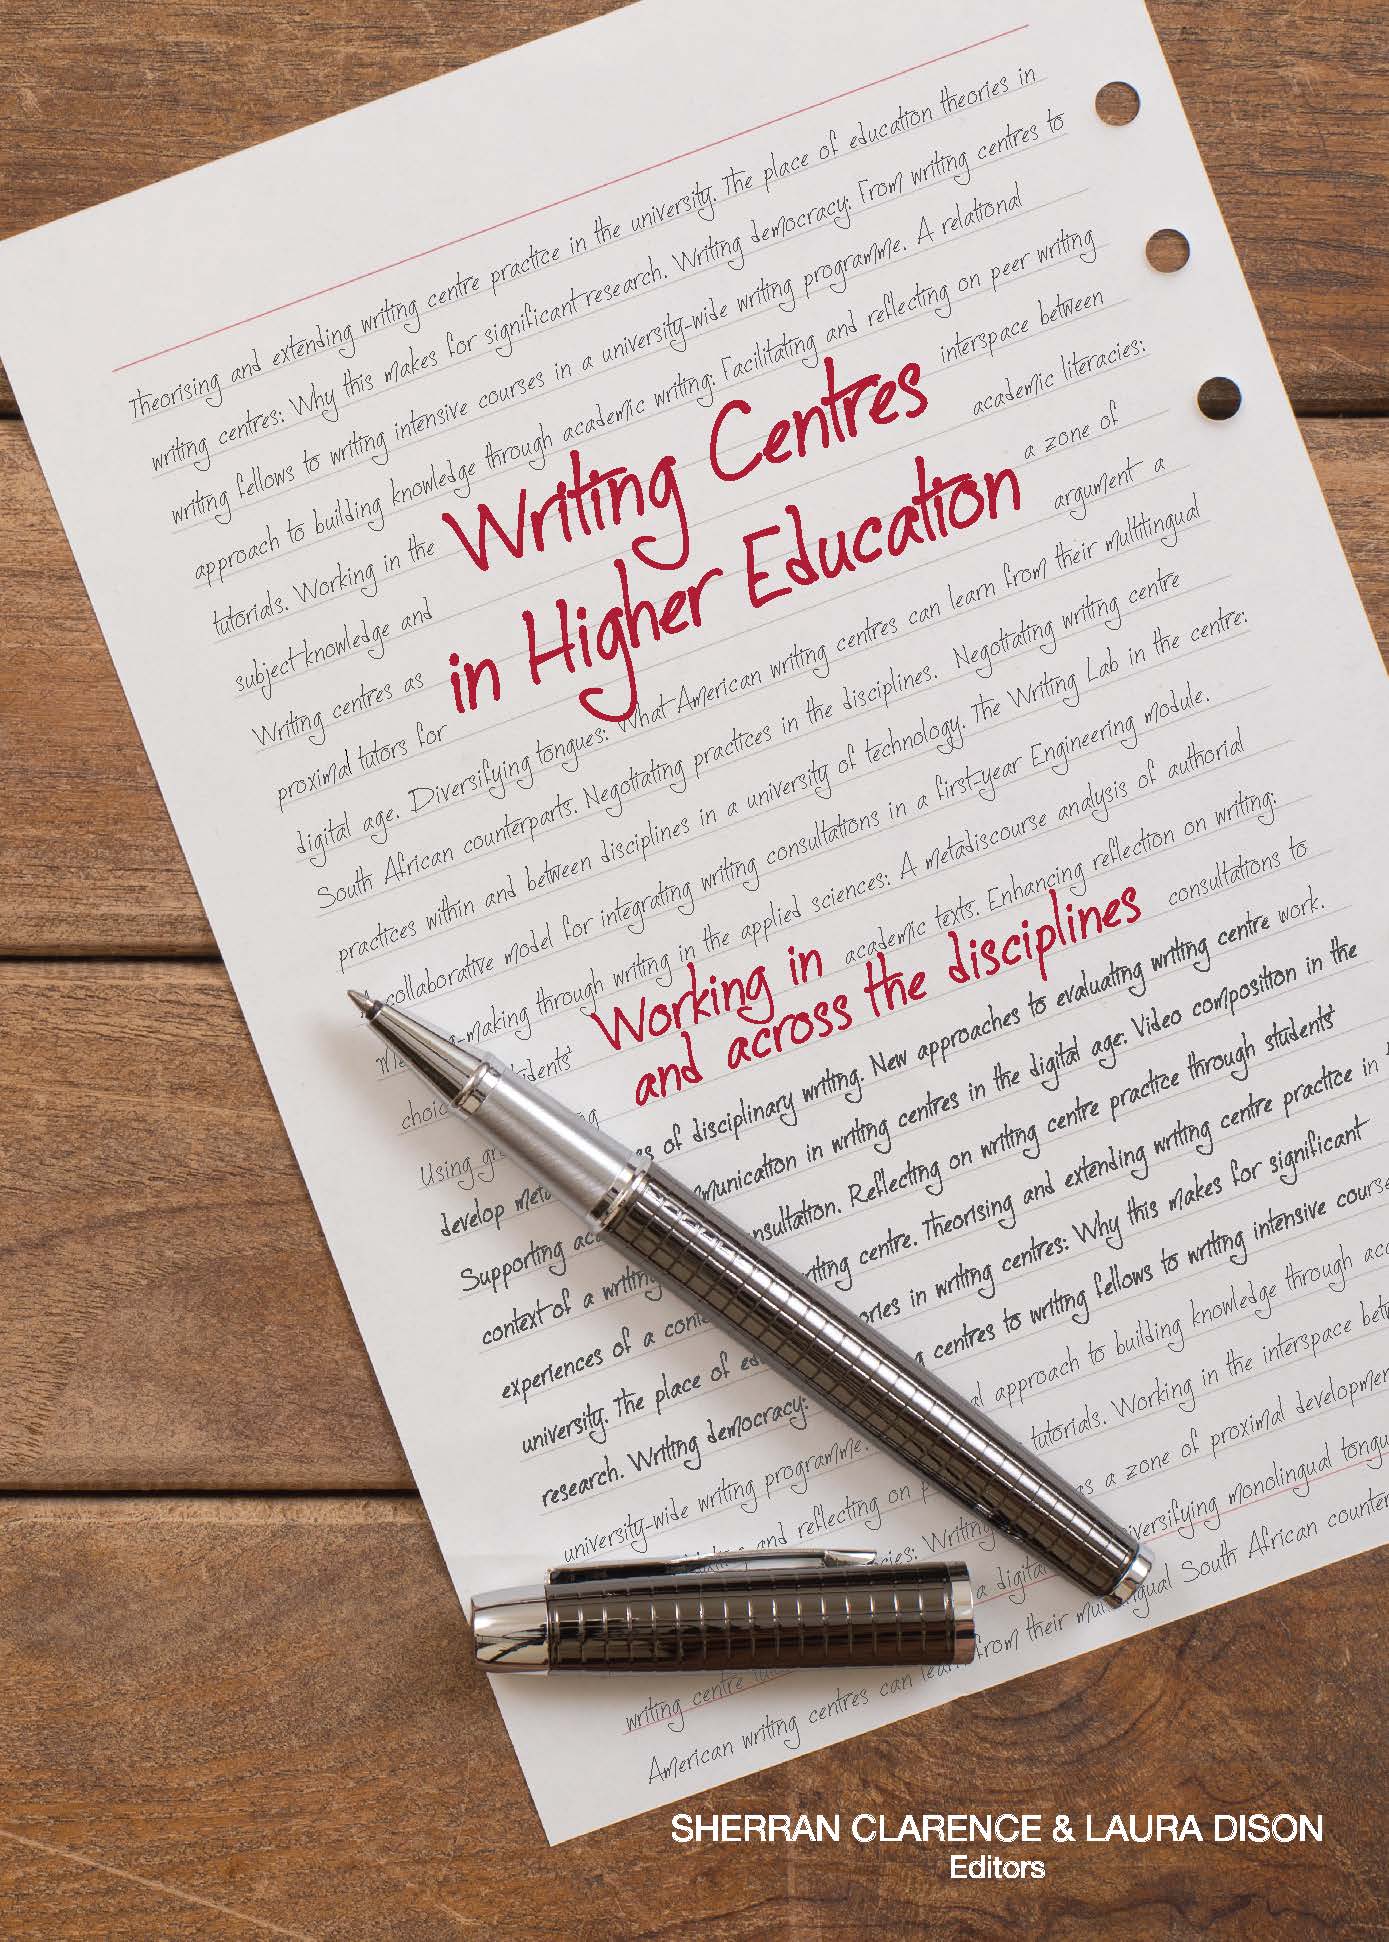 Theorising and extending writing centre practice in the university. The place of education theories in
writing centres: Why this makes for significant research. Writing democracy: From writing centres to
writing fellows to writing intensive courses in a university-wide writing programme. A relational
approach to building knowledge through academic writing: Facilitating and reflecting on peer writing
tutorials. Working in the interspace between
subject knowledge and academic literacies:
Writing centres as a zone of
proximal tutors for argument a
Writing Centres
in Higher Education
digital age. Diversifying tongues: What American writing centres can learn from their multilingual
South African counterparts. Negotiating practices in the disciplines. Negotiating writing centre
practices within and between disciplines in a university of technology. The Writing Lab in the centre:
collaborative model for integrating writing consultations in a first-year Engineering module.
-making through writing in the applied sciences: A metadiscourse analysis of authorial
academic texts. Enhancing reflection on writing:
Working in
and across the disciplines
Using consultations to
develop of disciplinary writing. New approaches to evaluating writing centre work.
Supporting in writing centres in the digital age: Video composition in the
context of a writing Reflecting on writing centre practice through students'
experiences of a centre. Theorising and extending writing centre practice in
university. The place of in writing centres: Why this makes for significant
research. Writing democracy: centres to writing fellows to writing intensive course
university-wide writing programme. approach to building knowledge through
and reflecting on tutorials. Working in the interspace
Writing as a zone of proximal
writing centre a digital monolingual
American writing centres can learn from their multilingual South African
SHERRAN CLARENCE & LAURA DISON
Editors